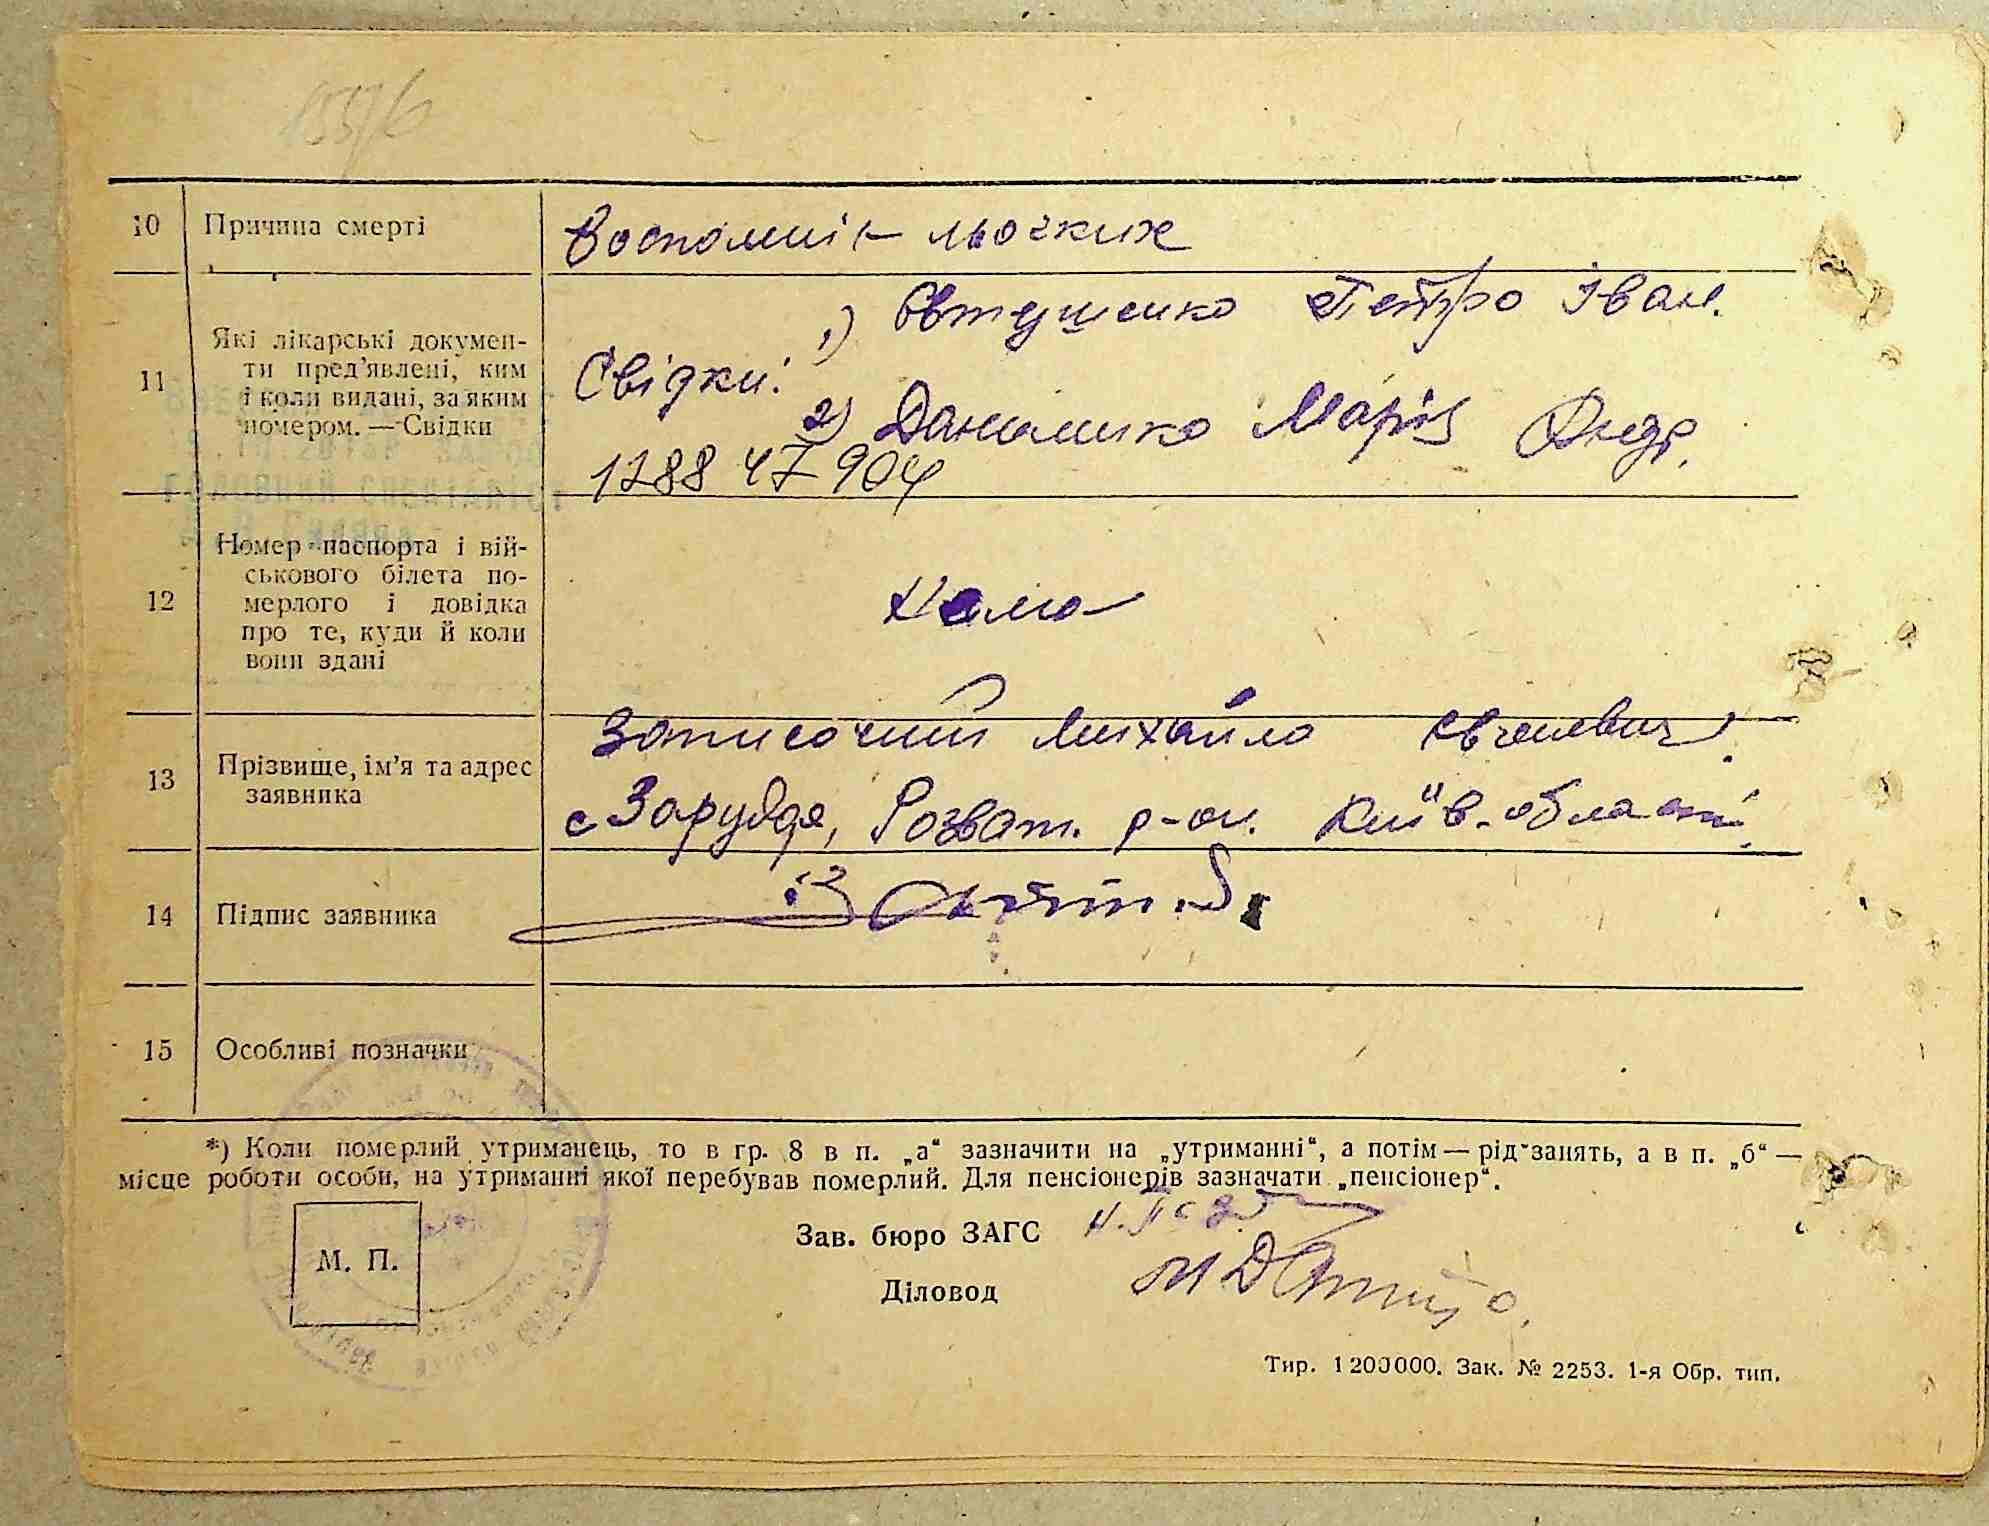 10 Причина смерті
Воспомнін льогких
11 Які лікарські докумен-
ти пред'явлені, ким
і коли видані, за яким
номером. — Свідки
1) Євтушенко Петро Іван.
Свідки:
2) Данилико Марія Андр.
1788 47 904
12 Номер паспорта і вій-
ськового білета по-
мерлого і довідка
про те, куди й коли
вони здані
Нема
13 Прізвище, ім'я та адрес
заявника
Михайло
с Заруддя, Розваж. р-он. Київ. області.
14 Підпис заявника
15 Особливі позначки
*) Коли померлий утриманець, то в гр. 8 в п. „а“ зазначити на „утриманні“, а потім — рід занять, а в п. „б“ —
місце роботи особи, на утриманні якої перебував померлий. Для пенсіонерів зазначати „пенсіонер“.
М. П.
Зав. бюро ЗАГС
Діловод
Тир. 1200000. Зак. № 2253. 1-я Обр. тип.